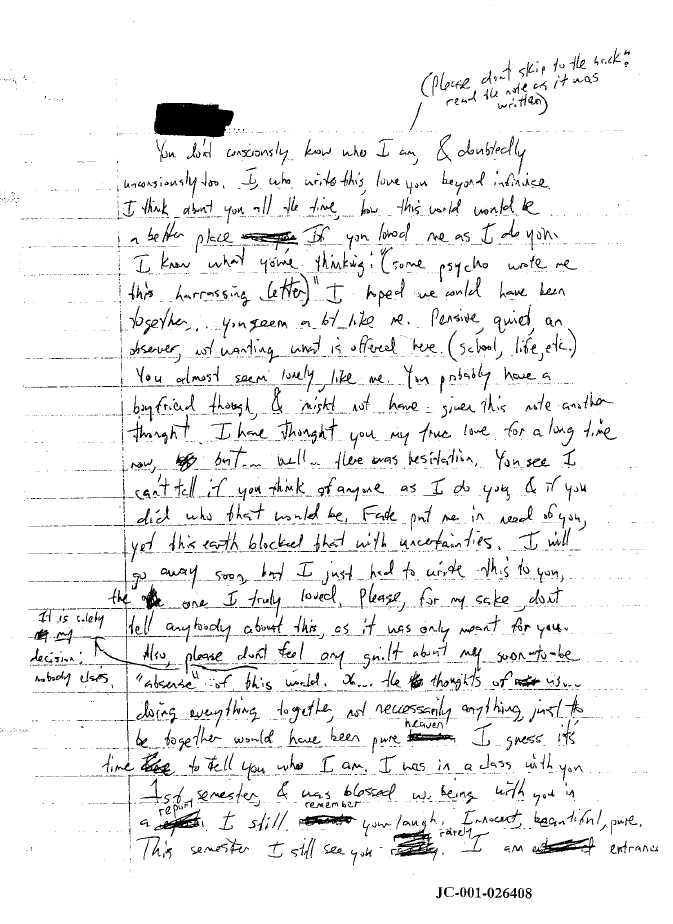 (Please don't skip to the back:
read the note as it was
written)
You don't consciously know who I am, & doubtedly
unconsiously too. I, who write this, love you beyond infinince.
I think about you all the time, how this world would be
a better place If you loved me as I do you.
I know what you're thinking: "(some psycho wrote me
this harrassing letter)" I hoped we could have been
together... you seem a bit like me. Pensive, quiet, an
observer, not wanting what is offered here. (school, life, etc.)
You almost seem lonely, like me. You probably have a
boyfriend though, & might not have given this note another
thought. I have thought you my true love for a long time
now, but... well... there was hesitation. You see I
can't tell if you think of anyone as I do you, & if you
did who that would be. Fate put me in need of you,
yet this earth blocked that with uncertainties. I will
go away soon, but I just had to write this to you,
the one I truly loved. Please, for my sake, don't
tell anybody about this, as it was only meant for you.
Also, please don't feel any guilt about my soon-to-be
"absense" of this world.
It is solely
my
decision:
nobody elses.
Oh... the thoughts of us...
doing everything together, not neccessarily anything, just to
be together would have been pure heaven. I guess it's
time to tell you who I am. I was in a class with you
1st semester, & was blessed w. being with you in
a report. I still remember your laugh. Innocent, beautiful, pure.
This semester I still see you rarely. I am entrance
JC-001-026408